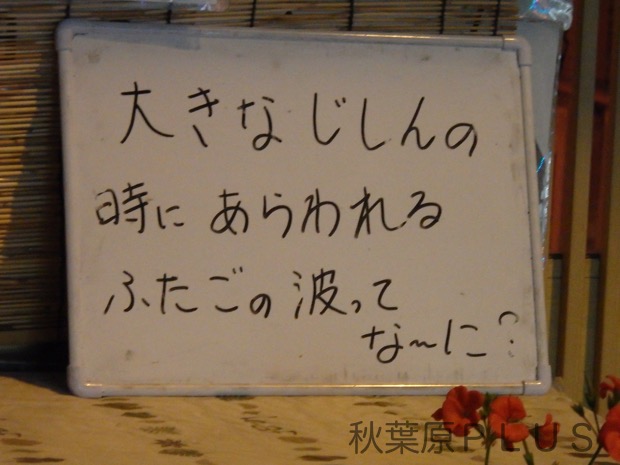 大きなじしんの
時にあらわれる
ふたごの波って
な～に?
秋葉原PLUS